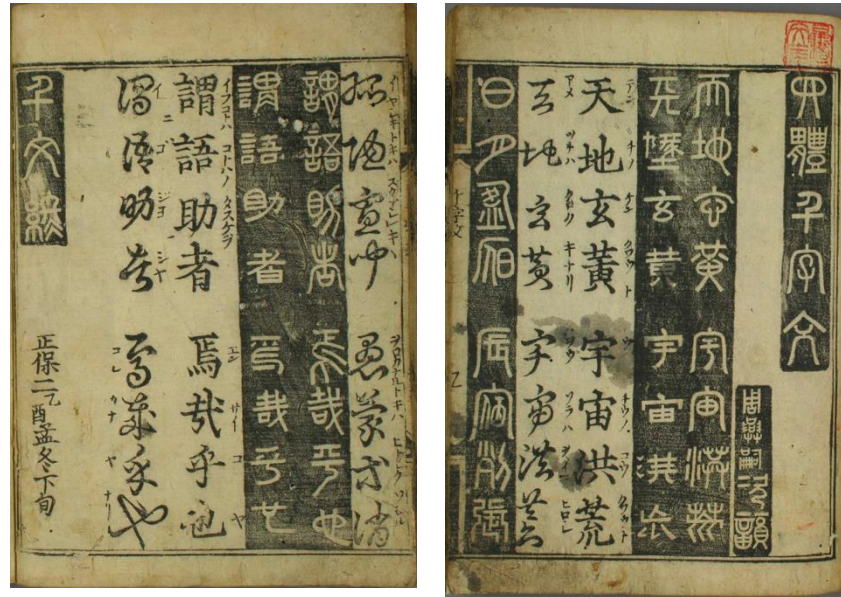 四體千字文
周興嗣次韻
天地玄黄 宇宙洪荒
天地玄黄 宇宙洪荒
天地玄黄 宇宙洪荒
天地玄黄 宇宙洪荒
日月盈昃 辰宿列張
千字文
孤陋寡聞 愚蒙等誚
謂語助者 焉哉乎也
謂語助者 焉哉乎也
謂語助者 焉哉乎也
エン サイ コ ヤ
謂語助者 焉哉乎也
イ ゴ ジヨ シヤ
コレ カナ ヤ ナリ
千文終
正保二乙酉孟冬下旬